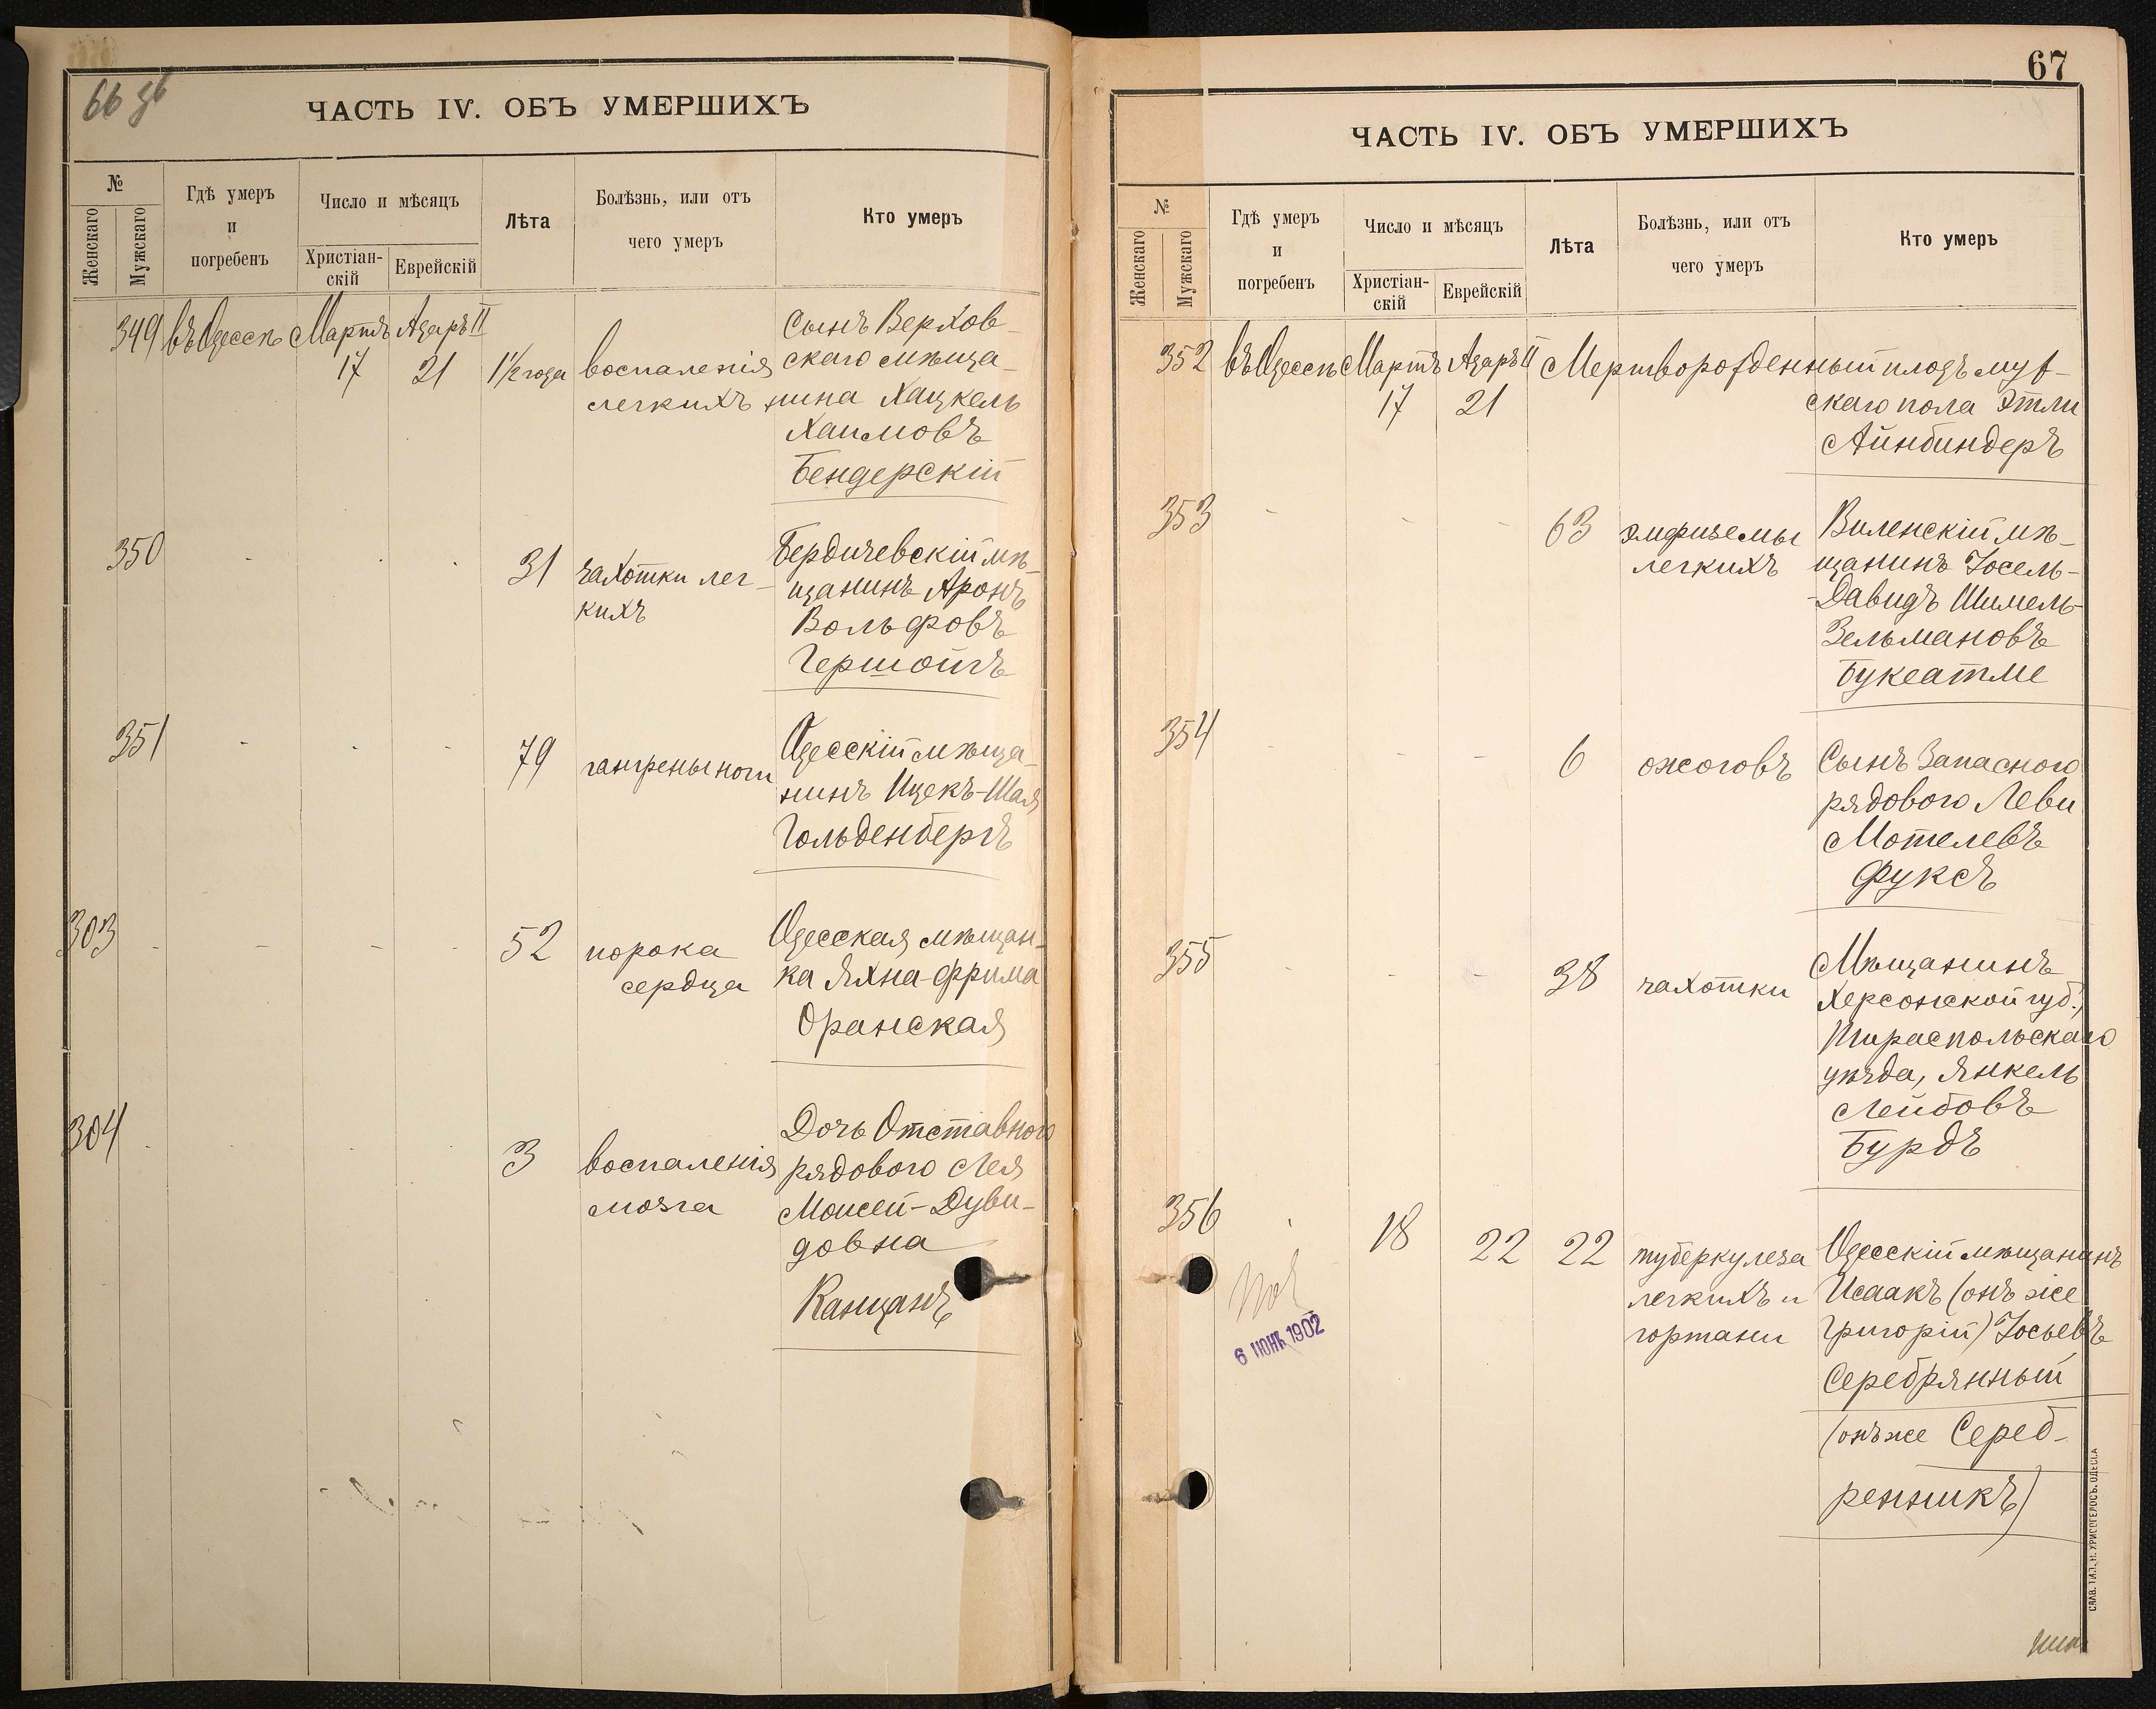 66 об
ЧАСТЬ IV. ОБЪ УМЕРШИХЪ
№
Женскаго
Мужскаго
Гдѣ умеръ
и
погребенъ
Число и мѣсяцъ
Христіан-
скій
Еврейскій
Лѣта
Болѣзнь, или отъ
чего умеръ
Кто умеръ
349 въ Одессѣ Мартъ Адаръ II
17 21 1½ года воспаленія
легкихъ
Сынъ Верхов-
скаго мѣща-
нина Хацкель
Хаимовъ
Бендерскій
350 31 чахотки лег-
кихъ
Бердичевскій мѣ-
щанинъ Аронъ
Вольфовъ
Гершойгъ
351 79 гангрены ноги
Одесскій мѣща-
нинъ Ицекъ-Шая
Гольденбергъ
303 - - - - 52 порока
сердца
Одесская мѣщан-
ка Яхна-Фрима
Оранская
304 3 воспаленія
мозга
Дочь Отставного
рядового Лея
Моисей-Дуви-
довна
Канцанъ
67
ЧАСТЬ IV. ОБЪ УМЕРШИХЪ
№
Женскаго
Мужскаго
Гдѣ умеръ
и
погребенъ
Число и мѣсяцъ
Христіан-
скій
Еврейскій
Лѣта
Болѣзнь, или отъ
чего умеръ
Кто умеръ
352 въ Одессѣ Мартъ Адаръ II Мертворожденный плодъ муж-
17 21 скаго пола Этли
Айнбиндеръ
353 - - - 63 эмфиземы
легкихъ
Виленскій мѣ-
щанинъ Іосель-
-Давидъ Шимель-
Зельмановъ
Букеатме
354 - - - 6 ожоговъ
Сынъ Запасного
рядового Леви
Мотелевъ
Фуксъ
355 - - - 38 чахотки
Мѣщанинъ
Херсонской губ.,
Тираспольскаго
уѣзда, Янкель
Лейбовъ
Бурдъ
356 18 22 22 туберкулеза
легкихъ и
гортани
Одесскій мѣщанинъ
Исаакъ (онъ же
Григорій) Іосьевъ
Серебрянный
(онъ же Сереб-
ренникъ)
6 ІЮН. 1902
СЛАВ. ТИП. Н. ХРИСОГЕЛОСЪ. ОДЕССА